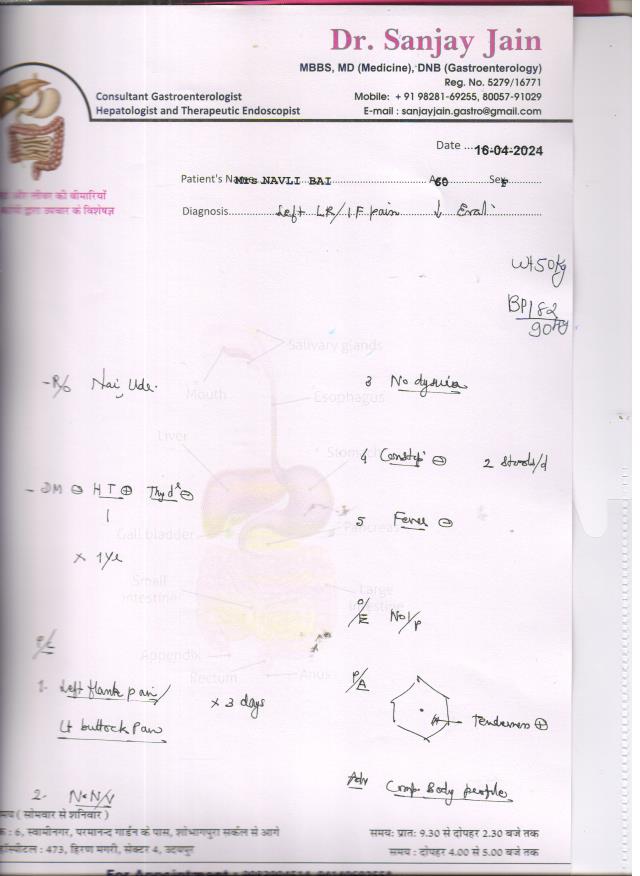 Dr. Sanjay Jain
MBBS, MD (Medicine), DNB (Gastroenterology)
Reg. No. 5279/16771
Consultant Gastroenterologist
Mobile: + 91 98281-69255, 80057-91029
Hepatologist and Therapeutic Endoscopist
E-mail : sanjayjain.gastro@gmail.com
Date ... 16-04-2024
Patient's Name Mrs NAVLI BAI Age 60 Sex F
और लीवर की बीमारियों
द्वारा उपचार के विशेषज्ञ
Diagnosis Left LR/IF pain ↓ Eval
Wt 50 kg
BP 182
90
Salivary glands
- R/o Nai Ude.
3 No dysuria
Mouth
Esophagus
Liver
Stomach
4 Constip ⊖ 2 stools/d
- DM ⊖ HT ⊕ Thyd ⊖
5 Fever ⊖
Gall bladder
Pancreas
x 1 Ye
Small
intestine
Large
intestine
O/E No/P
Appendix
Rectum
Anus
1. Left flank pain/
x 3 days
P/A
Lt buttock Pain
Tenderness ⊕
2. No N/V
Adv Comp. Body profile
समय ( सोमवार से शनिवार )
: 6, स्वामीनगर, परमानन्द गार्डन के पास, शोभागपुरा सर्कल से आगे
समय: प्रातः 9.30 से दोपहर 2.30 बजे तक
हॉस्पीटल : 473, हिरण मगरी, सेक्टर 4, उदयपुर
समय : दोपहर 4.00 से 5.00 बजे तक
For Appointment :